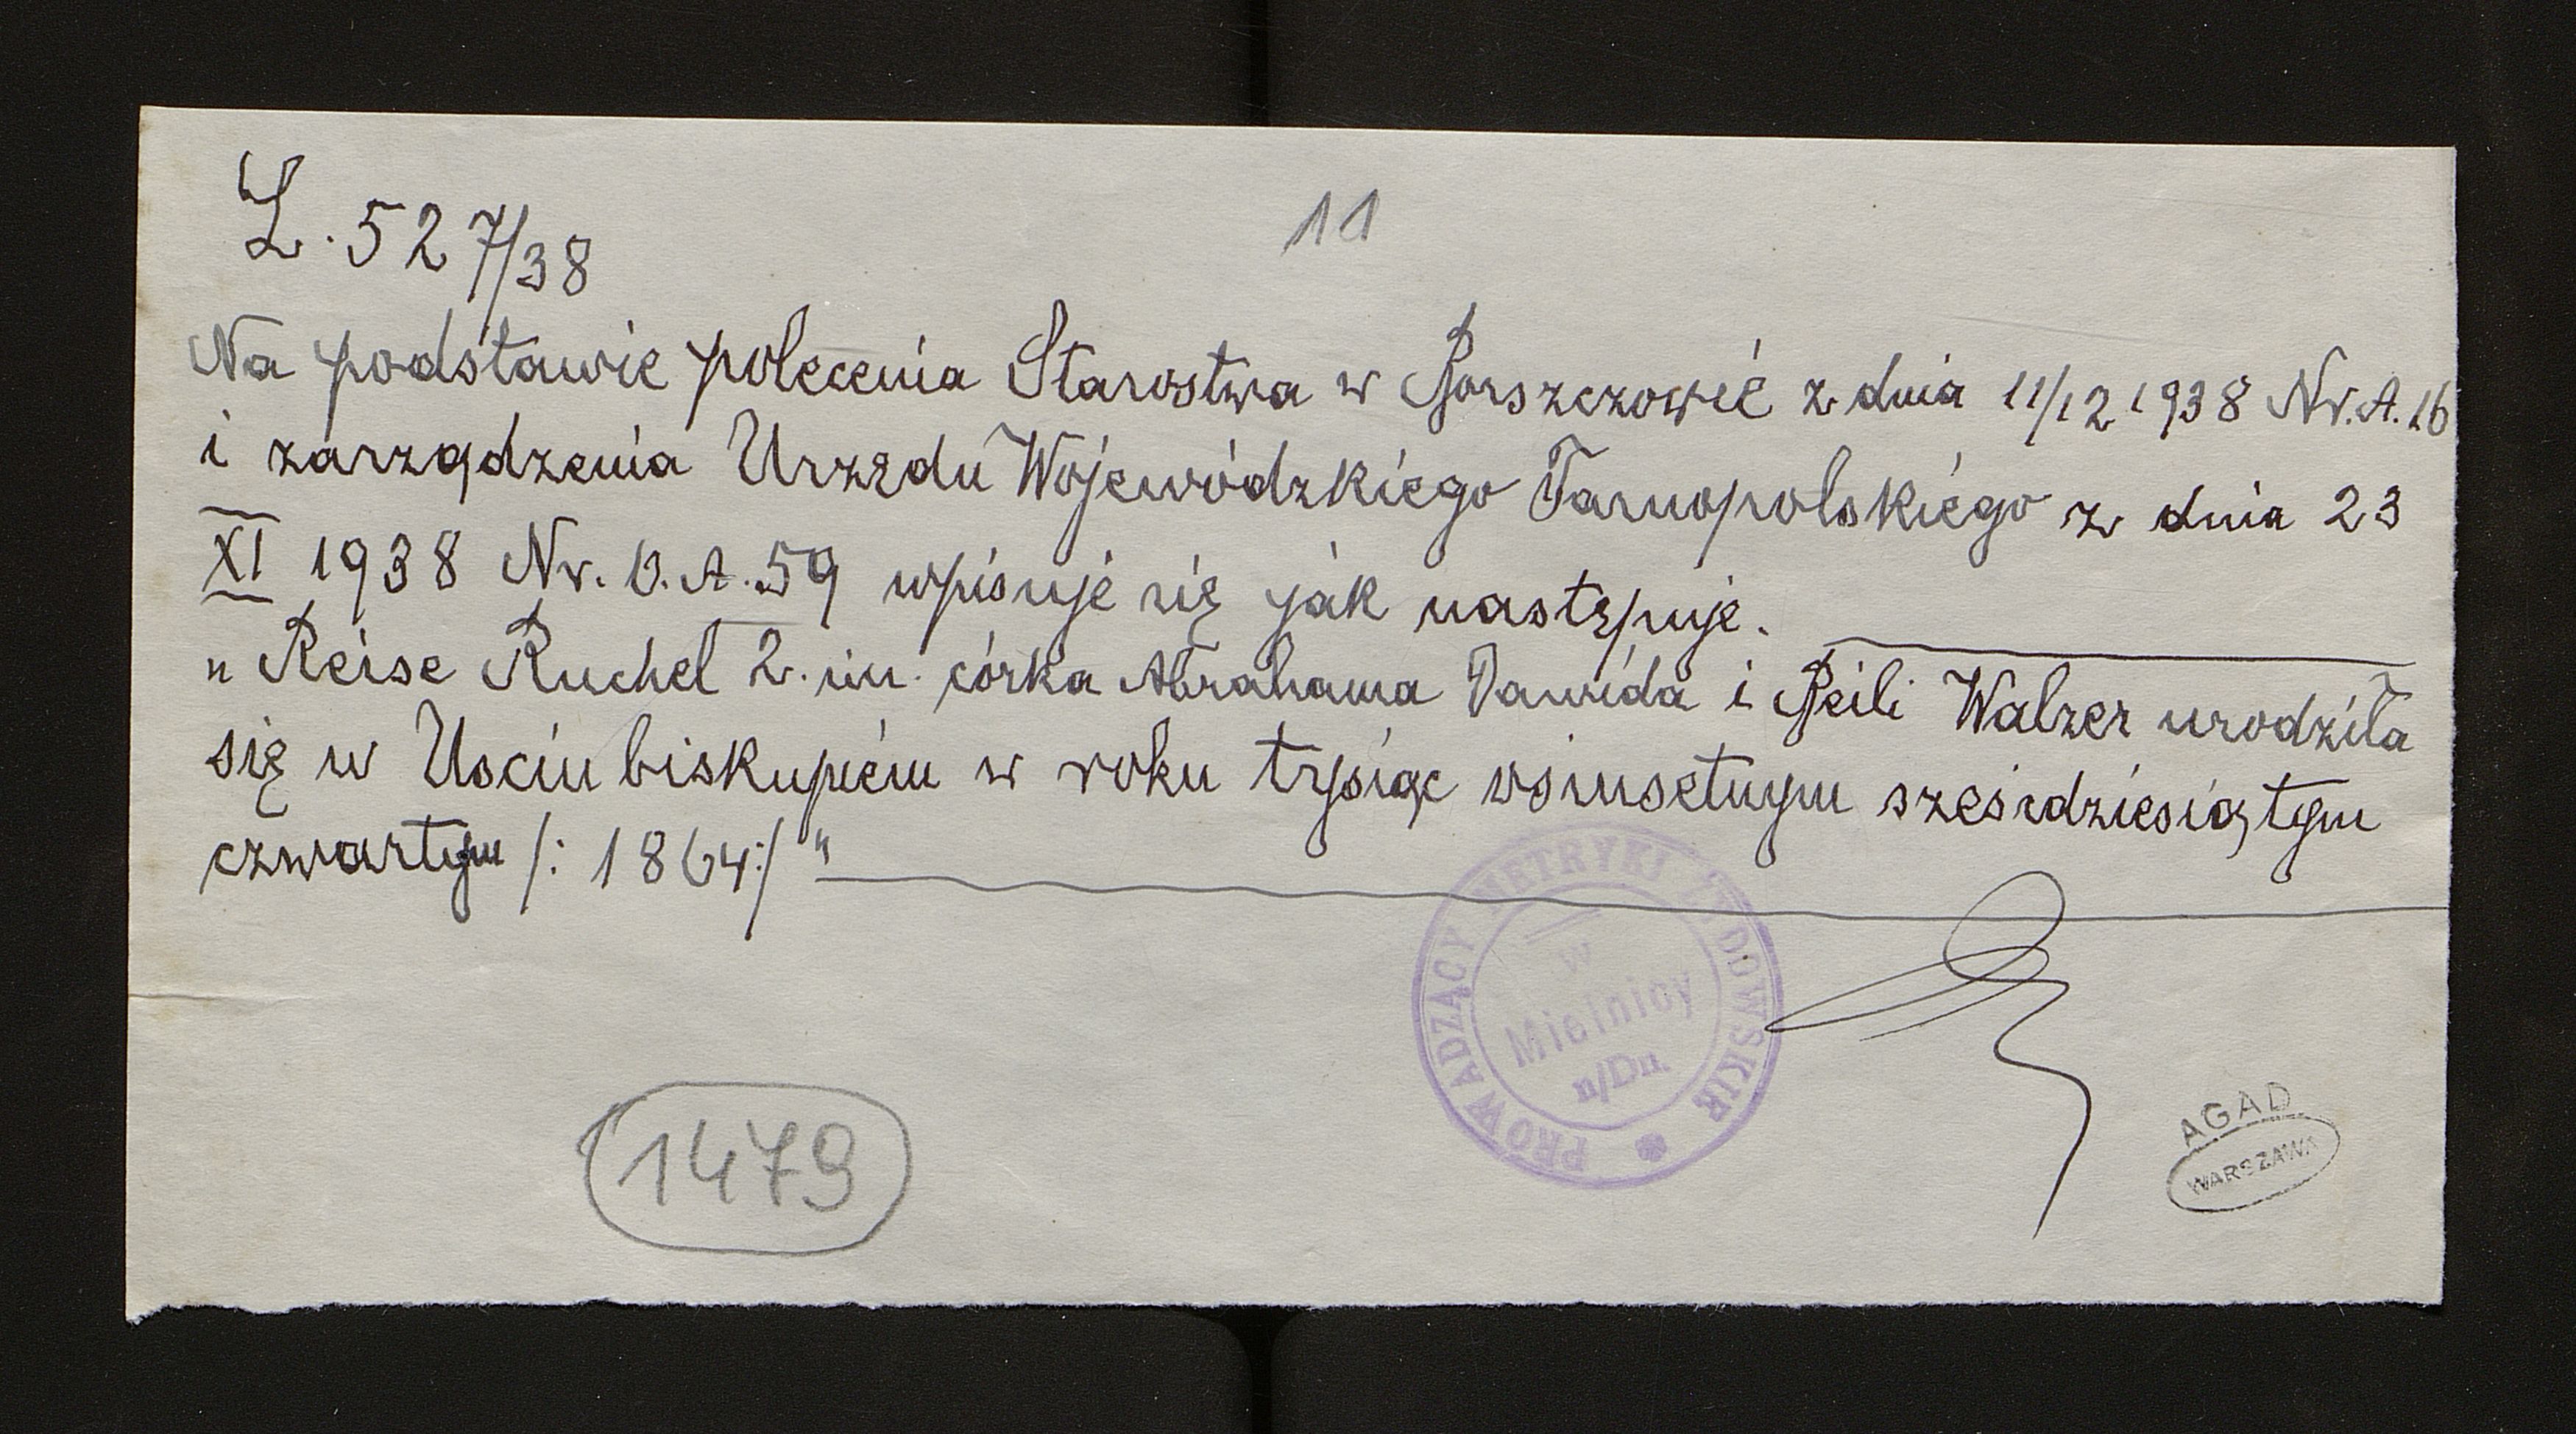 L. 527/38
11
Na podstawie polecenia Starostwa w Borszczowie z dnia 11/12 1938 Nr. A. 16
i zarządzenia Urzędu Wojewódzkiego Tarnopolskiego z dnia 23
XI 1938 Nr. A. 59 wpisuje się jak następuje.
„Reise Ruchel 2. im. córka Abrahama Dawida i Beili Walzer urodziła
się w Uściu biskupiem w roku tysiąc ośmsetnym sześćdziesiątym
czwartym /: 1864:/"
PROWADZĄCY METRYKI ŻYDOWSKIE
w
Mielnicy
n/Dn.
1479
AGAD
WARSZAWA